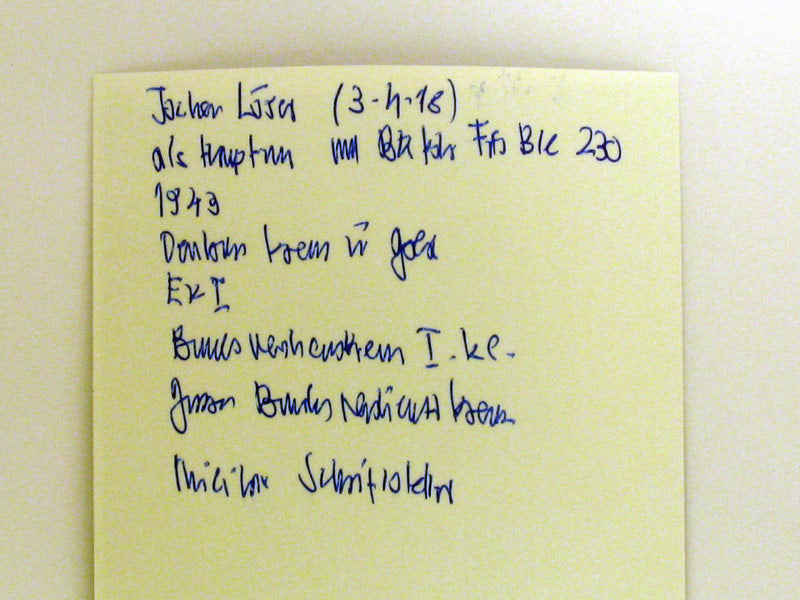 Jochen Löser (3-4-18)
als Hauptm und Btl Kdr Füs Btl 230
1943
Deutsches Kreuz in Gold
EK I
Bundesverdienstkreuz I. Kl.
Grosses Bundesverdienstkreuz
Militär Schriftsteller